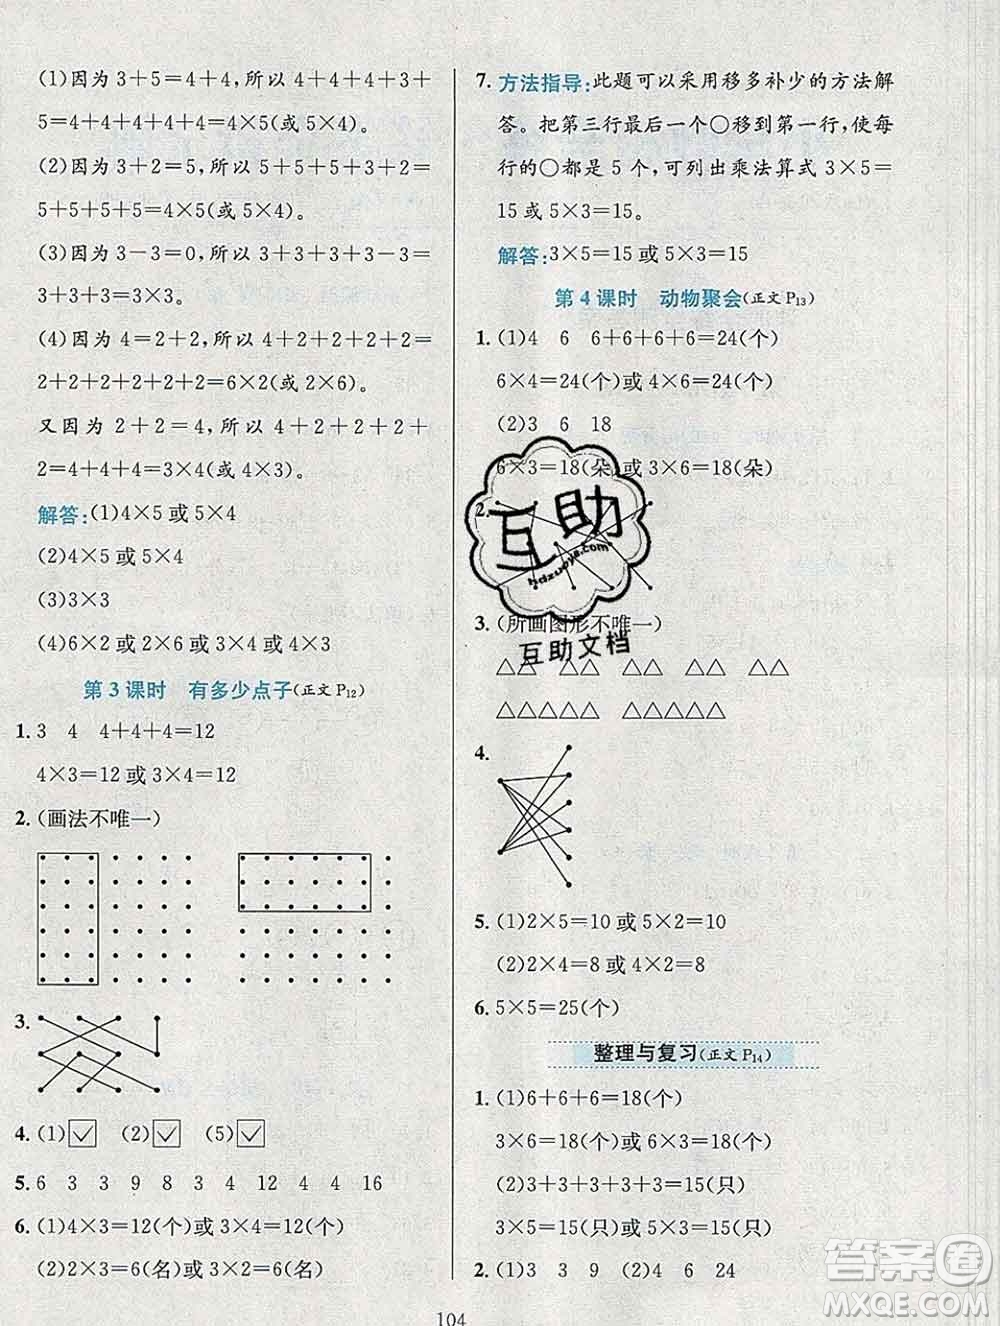 (1)因为 3＋5＝4＋4，所以 4＋4＋4＋3＋
5＝4＋4＋4＋4＋4＝4×5(或 5×4)。
(2)因为 3＋2＝5，所以 5＋5＋5＋3＋2＝
5＋5＋5＋5＝4×5(或 5×4)。
(3)因为 3－3＝0，所以 3＋3＋3＋3－3＝
3＋3＋3＝3×3。
(4)因为 4＝2＋2，所以 4＋2＋2＋2＋2＝
2＋2＋2＋2＋2＋2＝6×2(或 2×6)。
又因为 2＋2＝4，所以 4＋2＋2＋2＋2＝
4＋4＋4＝4×3(或 3×4)。
解答:(1)4×5 或 5×4
(2)4×5 或 5×4
(3)3×3
(4)6×2 或 2×6 或 3×4 或 4×3
第 3 课时 有多少点子(正文 P12)
1. 3 4 4＋4＋4＝12
4×3＝12 或 3×4＝12
2. (画法不唯一)
3.
4. (1)☑ (2)☑ (5)☑
5. 6 3 3 9 8 3 4 12 4 4 16
6. (1)4×3＝12(个)或 3×4＝12(个)
(2)2×3＝6(名)或 3×2＝6(名)
7. 方法指导:此题可以采用移多补少的方法解
答。把第三行最后一个○移到第一行，使每
行的○都是 5 个，可列出乘法算式 3×5＝
15 或 5×3＝15。
解答:3×5＝15 或 5×3＝15
第 4 课时 动物聚会(正文 P13)
1. (1)4 6 6＋6＋6＋6＝24(个)
6×4＝24(个)或 4×6＝24(个)
(2)3 6 18
6×3＝18(朵)或 3×6＝18(朵)
2.
互助
hdzuoye.com
互助文档
3. (所画图形不唯一)
△△ △△ △△ △△ △△
△△△△△ △△△△△
4.
5. (1)2×5＝10 或 5×2＝10
(2)2×4＝8 或 4×2＝8
6. 5×5＝25(个)
整理与复习(正文 P14)
1. (1)6＋6＋6＝18(个)
3×6＝18(个)或 6×3＝18(个)
(2)3＋3＋3＋3＋3＝15(只)
3×5＝15(只)或 5×3＝15(只)
2. (1)3 3 9 (2)4 6 24
104
答案圈
MXQE.COM